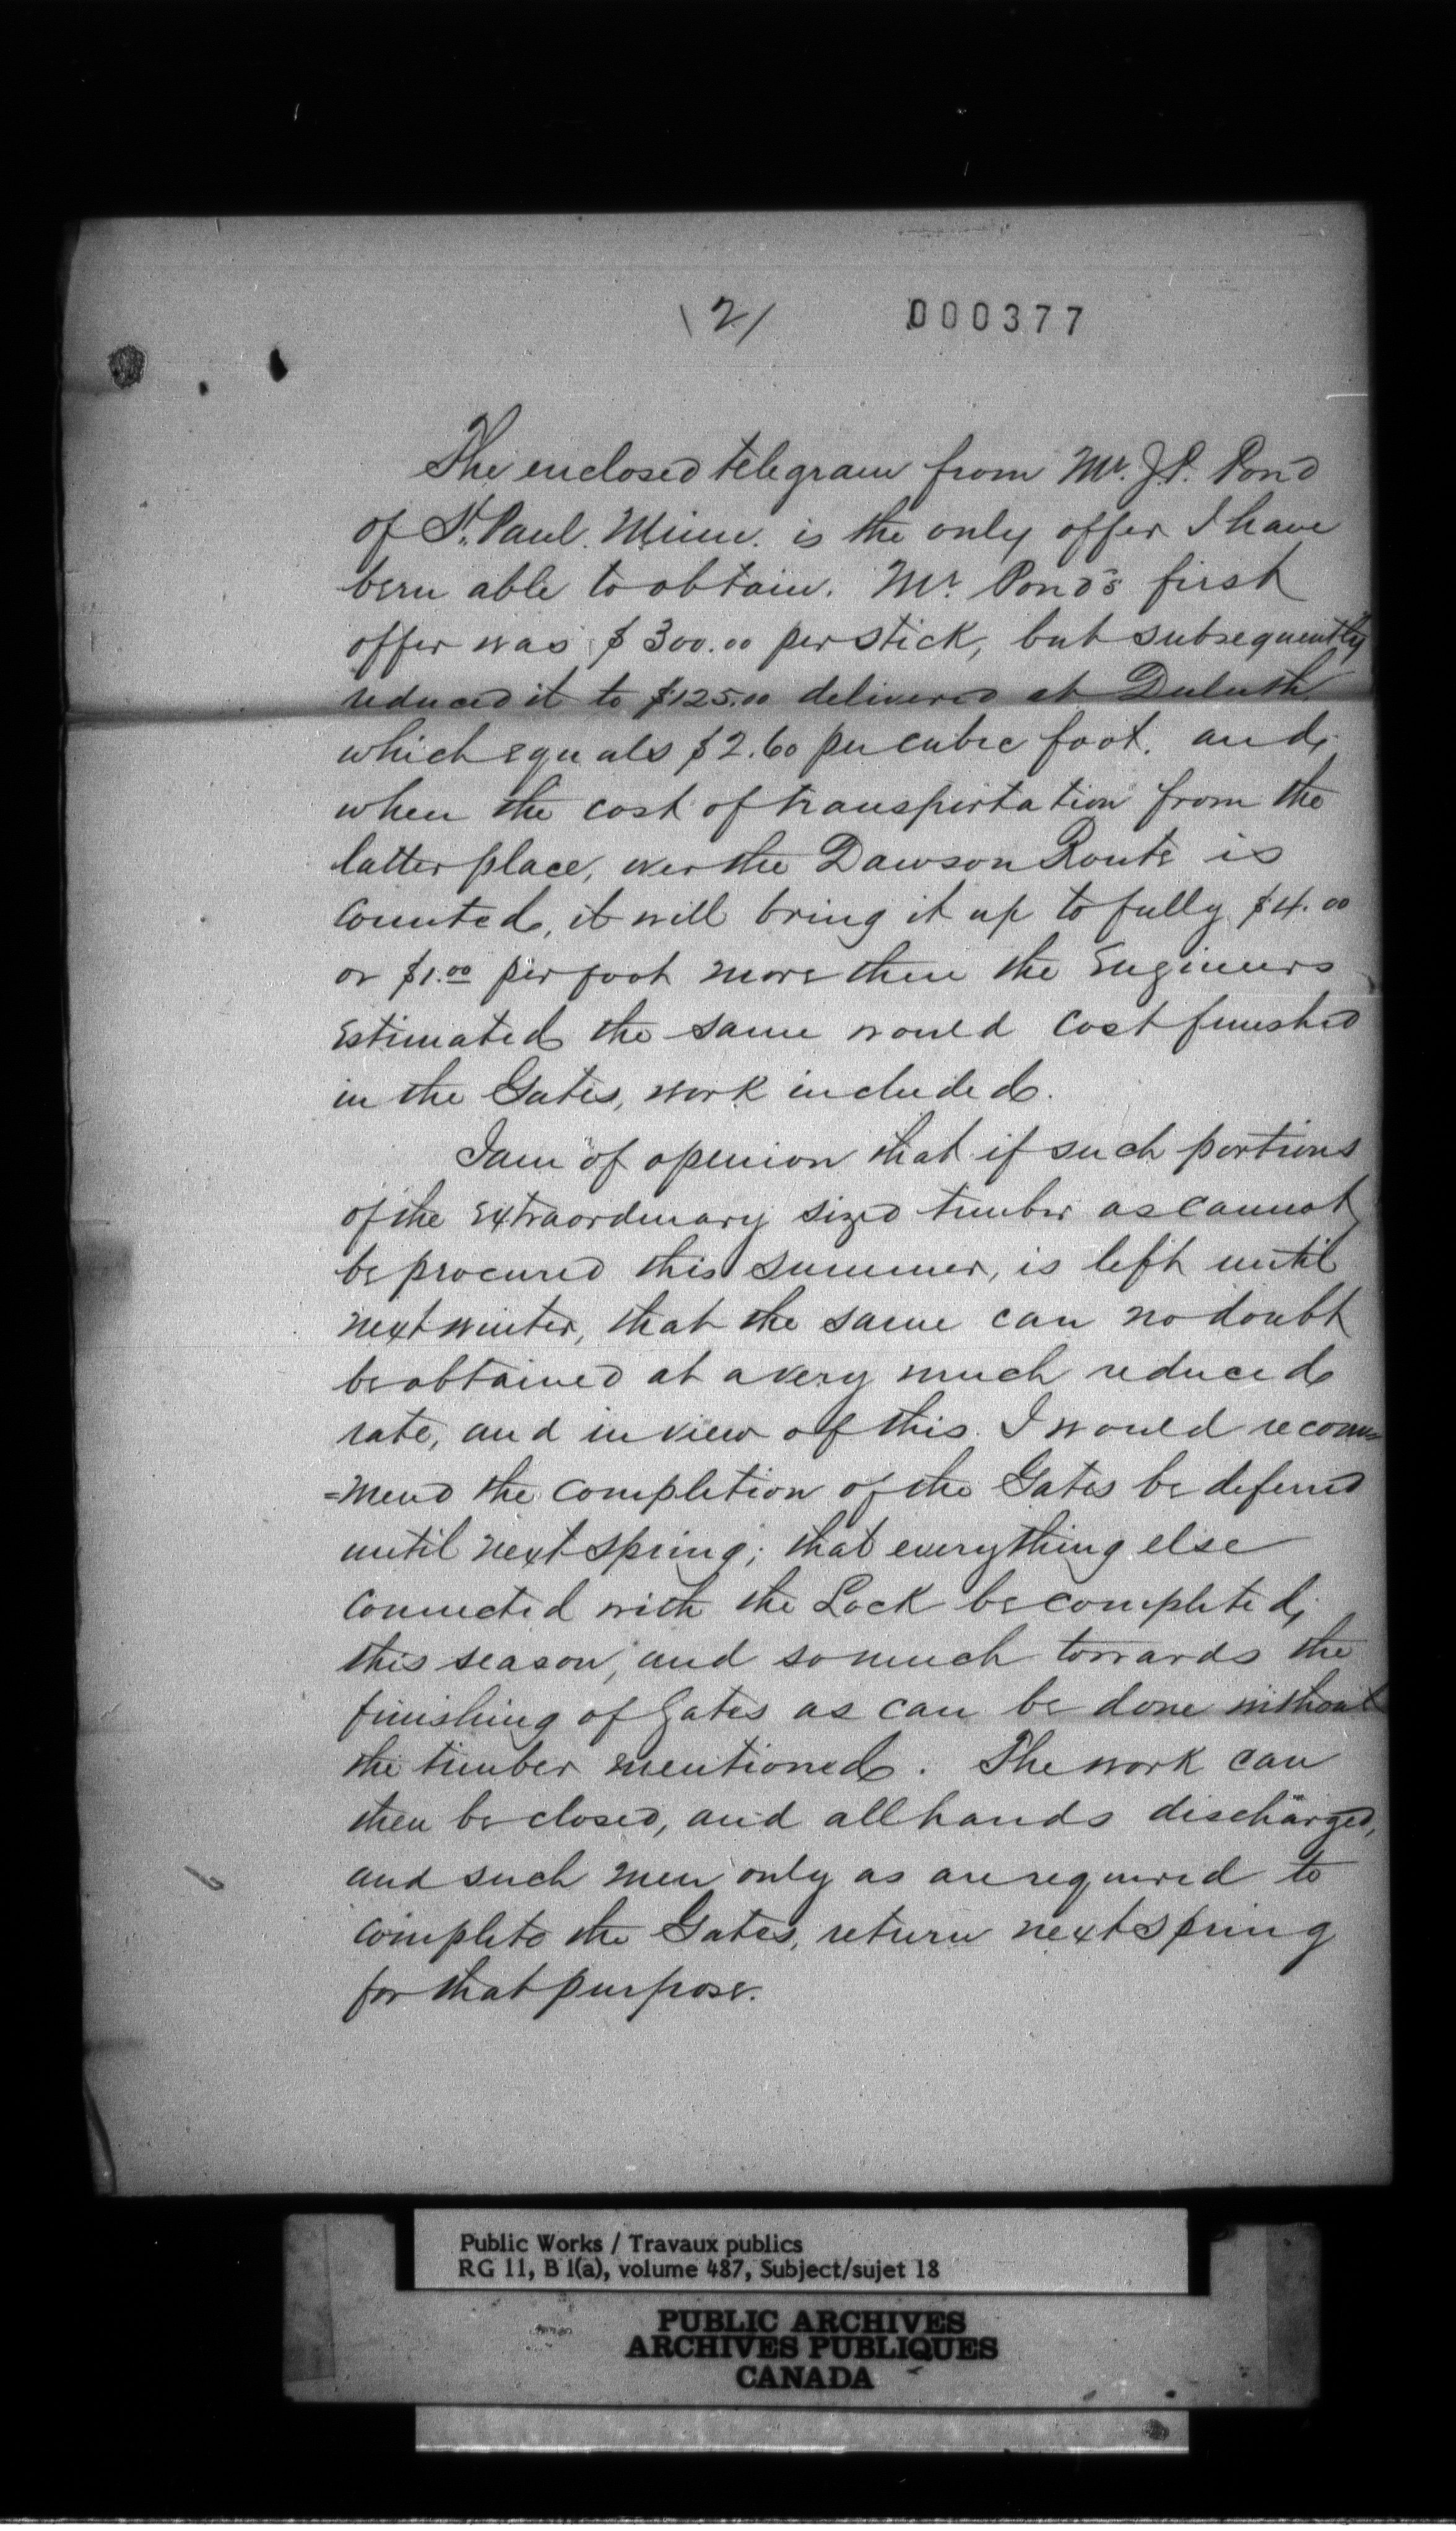 \2/ 000377
The enclosed telegram from Mr. J.P. Pond
of St. Paul. Minn. is the only offer I have
been able to obtain. Mr. Pond's first
offer was $300.00 per stick, but subsequently
reduced it to $125.00 delivered at Duluth
which equals $2.60 per cubic foot. and,
when the cost of transportation from the
latter place, over the Dawson Route is
counted, it will bring it up to fully $4.00
or $1.00 per foot more then the Engineers
Estimated the same would cost finished
in the Gates, work included.
I am of openion that if such portions
of the extraordinary sized timber as cannot
be procured this summer, is left until
next winter, that the same can no doubt
be obtained at a very much reduced
rate, and in view of this I would recom=
=mend the completion of the Gates be deferred
until next spring; that everything else
connected with the Lock be completed,
this season, and so much towards the
finishing of Gates as can be done without
the timber mentioned. The work can
then be closed, and all hands discharged,
and such men only as are required to
complete the Gates, return next spring
for that purpose.
Public Works / Travaux publics
RG 11, B 1(a), volume 487, Subject/sujet 18
PUBLIC ARCHIVES
ARCHIVES PUBLIQUES
CANADA